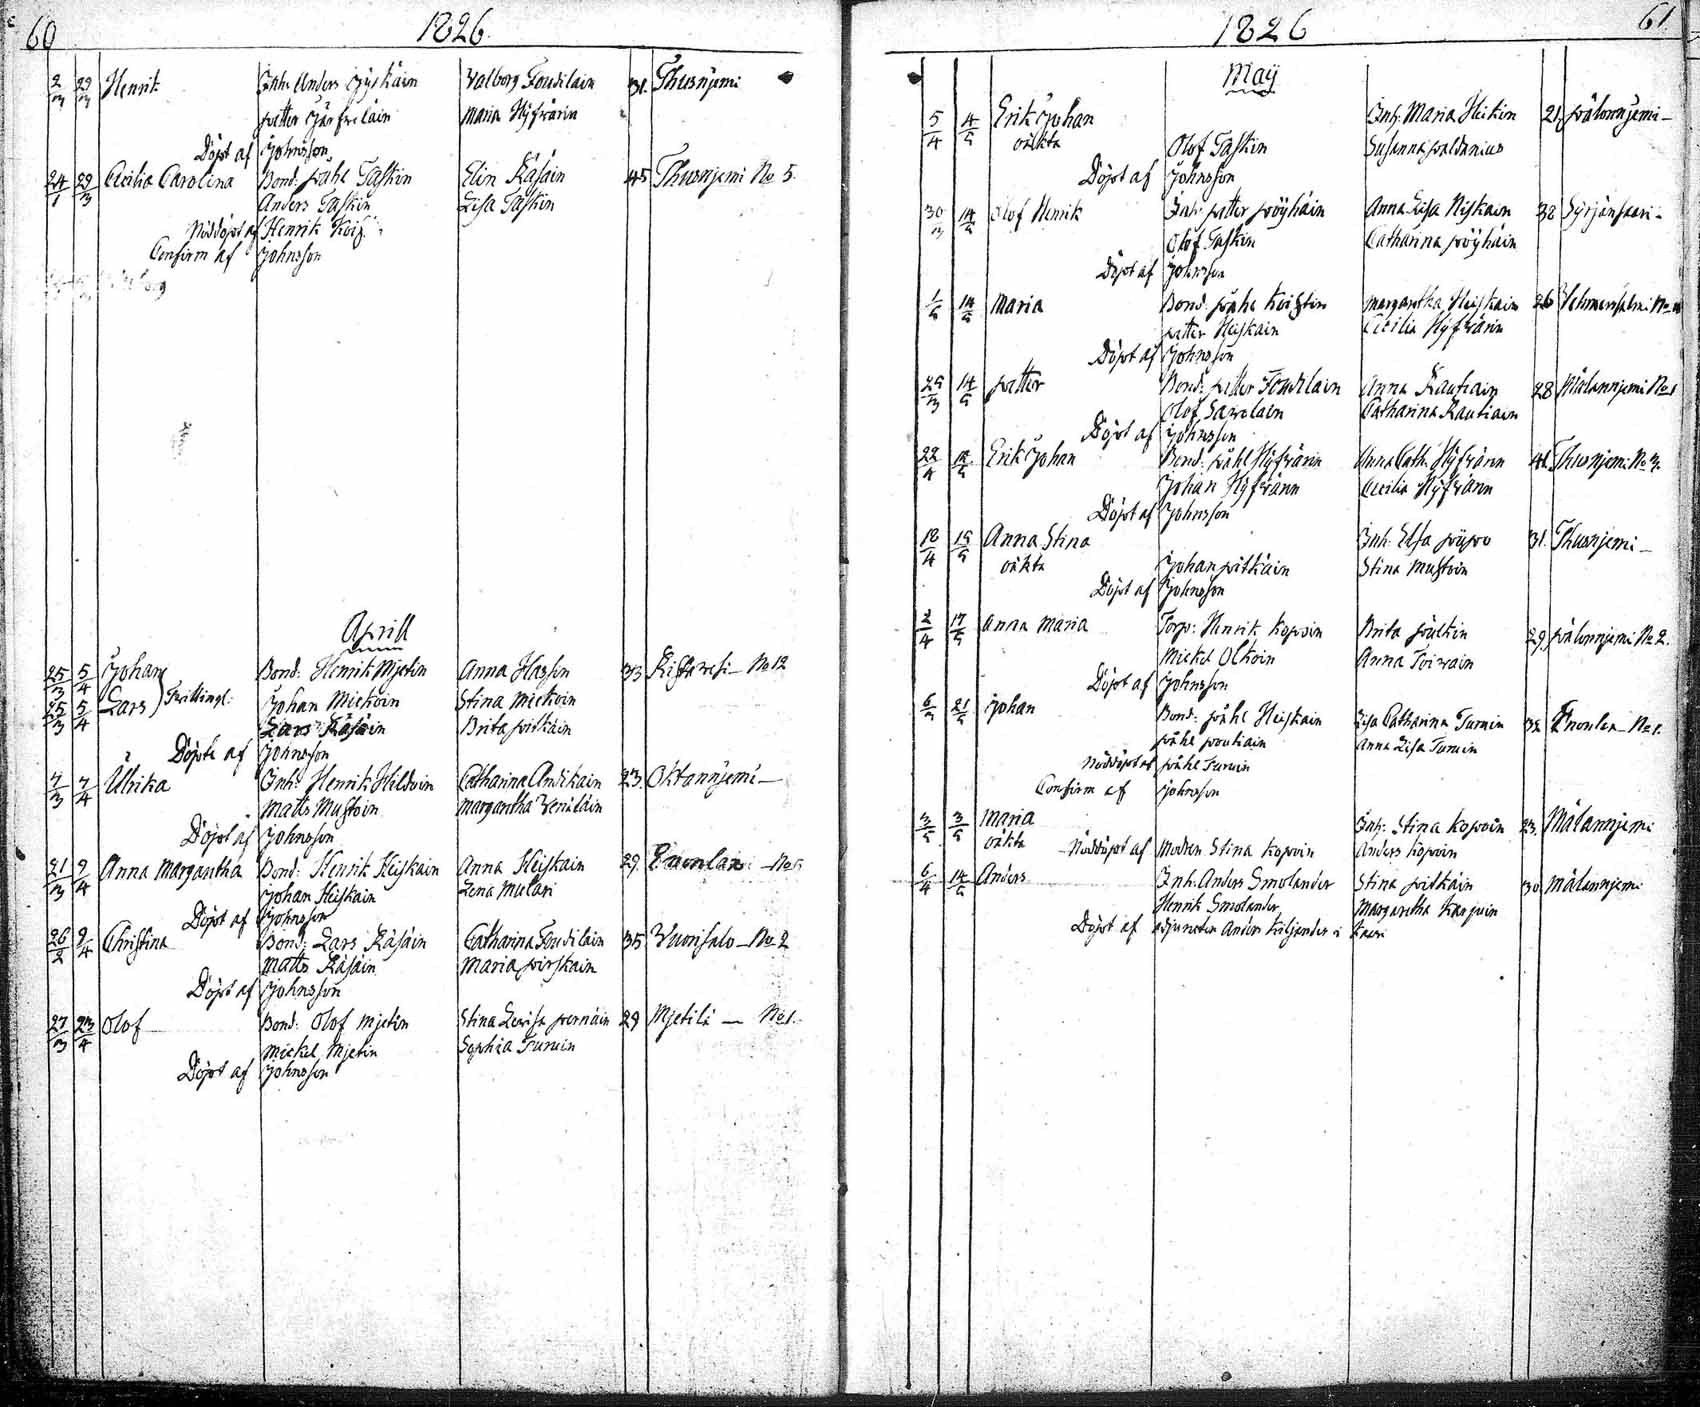 60 1826
2/3 29/3 Henrik Inh: Anders Valborg Foudilain 31. Thusnjemi
petter Maria Hyfvärin
Döpt af Johnsson
24/1 29/3 Cecilia Carolina Bond: påhl Taskin Elin Räsäin 45 Thusnjemi No 5.
Anders Taskin Lisa Taskin
Nöddöpt af Henrik
Confirm af Johnsson
Aprill
25/3 5/4 Johan Bond: Henrik Mjetin Anna Hassin 33 No 12
25/3 5/4 Lars Tvillingl: Johan Mickoin Stina Mickoin
Lars Räsäin Brita pitkäin
Döpte af Johnsson
7/3 7/4 Ulrika Inh: Henrik Hildoin Catharina 23. Oktannjemi
Matts Mustoin Margaretha Venäläin
Döpt af Johnsson
21/3 9/4 Anna Margaretha Bond: Henrik Heiskain Anna Heiskain 29.
Johan Heiskain Lena Mulari
Döpt af Johnsson
26/2 9/4 Christina Bond: Lars Räsäin Catharina Foudilain 35 Vaarisalo No 2
Matts Räsäin Maria pirskain
Döpt af Johnsson
27/3 23/4 Olof Bond: Olof Mjetin Stina Lovisa pernäin 29 Mjetilä No 1.
Mickel Mjetin Sophia Turuin
Döpt af Johnsson
1826 61
Maij
5/4 14/5 Erik Johan Inh: Maria Heikin 21. pälonnjemi
oäkta Olof Taskin Susanna paldanius
Döpt af Johnsson
30/3 14/5 Olof Henrik Inh: petter pöyhäin Anna Lisa Niskain 38 Syrjänsaari
Olof Taskin Catharina pöyhäin
Döpt af Johnsson
1/5 14/5 Maria Bond: påhl Koistin Margaretha Heiskain 26 Vehmersalmi
petter Heiskain Cecilia Hyfvärin
Döpt af Johnsson
25/3 14/5 petter Bond: petter Foudilain Anna Rautiain 28 Mälannjemi No 1
Olof Savolain Catharina Rautiain
Döpt af Johnsson
22/4 Erik Johan Bond: påhl Hyfvärin Anna Cath: Hyfvärin 41. Thusnjemi No 3.
Johan Hyfvärin Cecilia Hyfvärin
Döpt af Johnsson
18/4 15/5 Anna Stina Inh: Elsa 31. Thusnjemi
oäkta Johan pitkäin Stina Mustoin
Döpt af Johnsson
2/4 17/5 Anna Maria Torp: Henrik Kopoin Brita 29. pälonnjemi No 2.
Mickel Olkoin Anna Toivain
Döpt af Johnsson
21/5 Johan Bond: påhl Heiskain Lisa Catharina Turuin No 1.
påhl poutiain Anna Lisa Turuin
Nöddöpt af påhl Turuin
Confirm af Johnsson
3/5 3/5 Maria Inh: Stina Kopoin 23. Mälannjemi
oäkta Nöddöpt af modren Stina Kopoin Anders Kopoin
6/4 14/5 Anders Inh: Anders Smolander Stina pitkäin 30 Mälannjemi
Henrik Smolander Margaretha Karpuin
Döpt af adjuncten Anders Kiljander i Kaavi